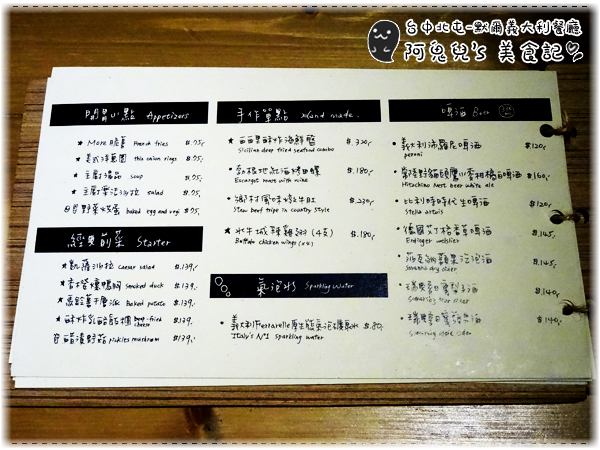 台中北屯-默爾義大利餐廳
阿兔兒's 美食記
開胃小點 Appetizers
★ More脆薯 French fries $.75,
★ 美式洋蔥圈 thin onion rings $.75,
★ 主廚湯品 soup $.75,
★ 主廚季活沙拉 salad $.75,
焗烤野菜烘蛋 baked egg and vegi $.95,
經典前菜 Starter
★ 凱薩沙拉 Caesar salad $.139,
★ 香橙燻鴨胸 Smoked duck $.139,
★ 焗餡薯千層派 Baked potato $.139,
★ 酥炸乳酪 deep-fried cheese $.139,
醋漬野菇 pickles mushroom $.139,
手作單點 Hand made.
★ 西西里酥炸海鮮盤 $.320,
Sicilian deep fried seafood combo
• 勃根地紅酒烤田螺 $.180,
Escargot roast with wine
• 鄉村風味燉牛肚 $.230,
Stew beef tripe in country style
★ 水牛城辣雞翅 (4支) $.180,
Buffalo chicken wings (x4)
氣泡水 Sparkling Water
• 義大利Ferrarelle原生態氣泡礦泉水 $.80,
"Italy's No1 Sparkling water
啤酒 Beer
• 義大利沛羅尼啤酒 $120,
peroni
• 常陸野貓頭鷹小麥柑橘白啤酒 $160,
Hitachino nest beer white ale
• 比利時時代生啤酒 $120,
Stella artois
• 德國艾丁格小麥啤酒 $.145,
Erdinger weißbier
蘋果汽泡酒 $.145,
dry cider
• 瑞典 梨子酒 $.140,
Somersby pear cider
• 瑞典 蘋果酒 $.140,
Somersby apple cider